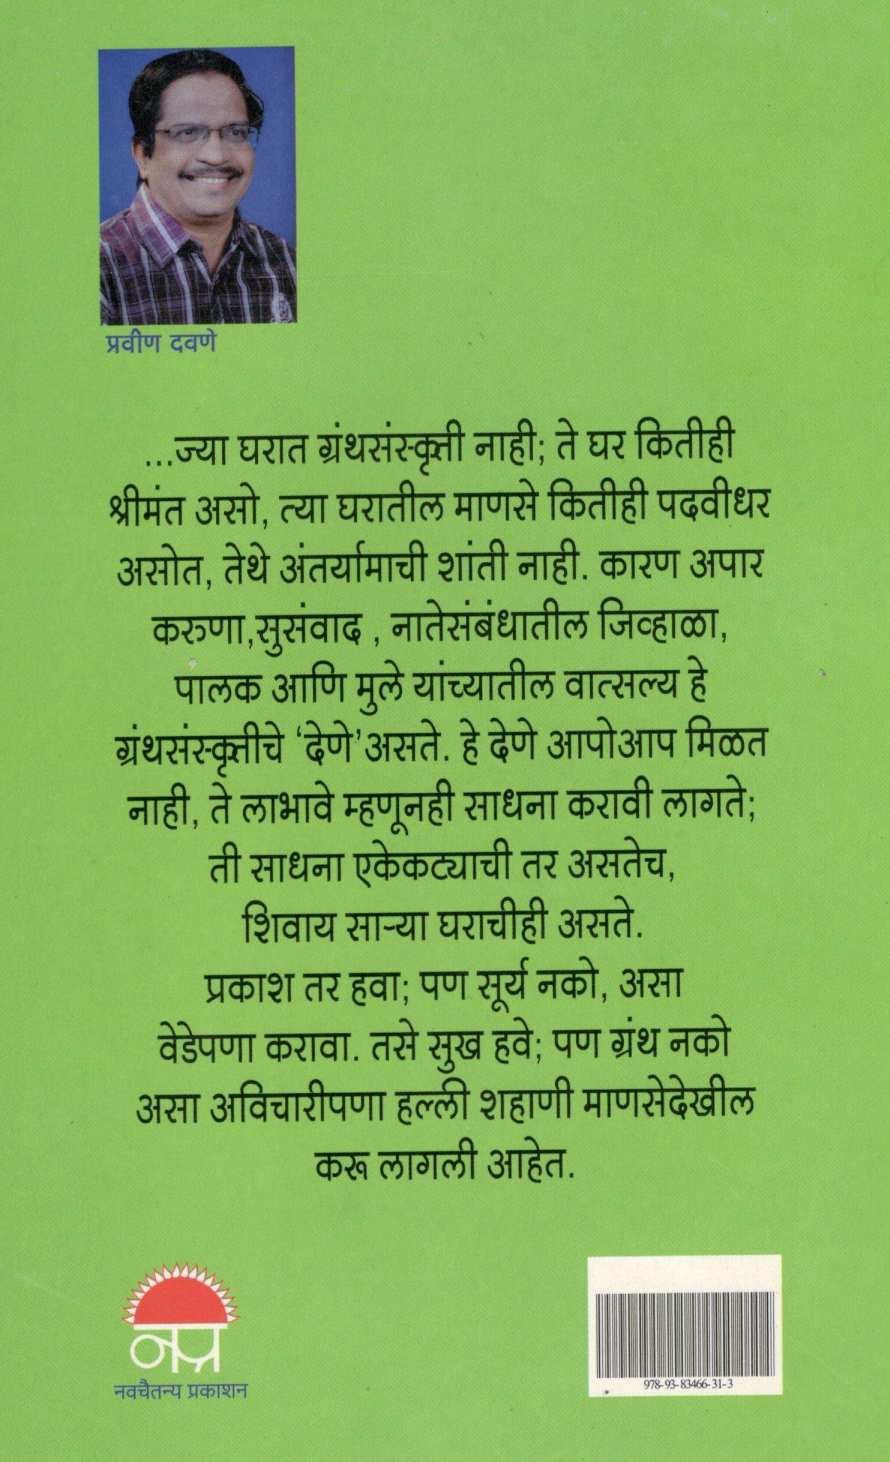 प्रवीण दवणे
...ज्या घरात ग्रंथसंस्कृती नाही; ते घर कितीही
श्रीमंत असो, त्या घरातील माणसे कितीही पदवीधर
असोत, तेथे अंतर्यामाची शांती नाही. कारण अपार
करुणा,सुसंवाद , नातेसंबंधातील जिव्हाळा,
पालक आणि मुले यांच्यातील वात्सल्य हे
ग्रंथसंस्कृतीचे ‘देणे’असते. हे देणे आपोआप मिळत
नाही, ते लाभावे म्हणूनही साधना करावी लागते;
ती साधना एकेकट्याची तर असतेच,
शिवाय साऱ्या घराचीही असते.
प्रकाश तर हवा; पण सूर्य नको, असा
वेडेपणा करावा. तसे सुख हवे; पण ग्रंथ नको
असा अविचारीपणा हल्ली शहाणी माणसेदेखील
करू लागली आहेत.
नप्र
नवचैतन्य प्रकाशन
978-93-83466-31-3